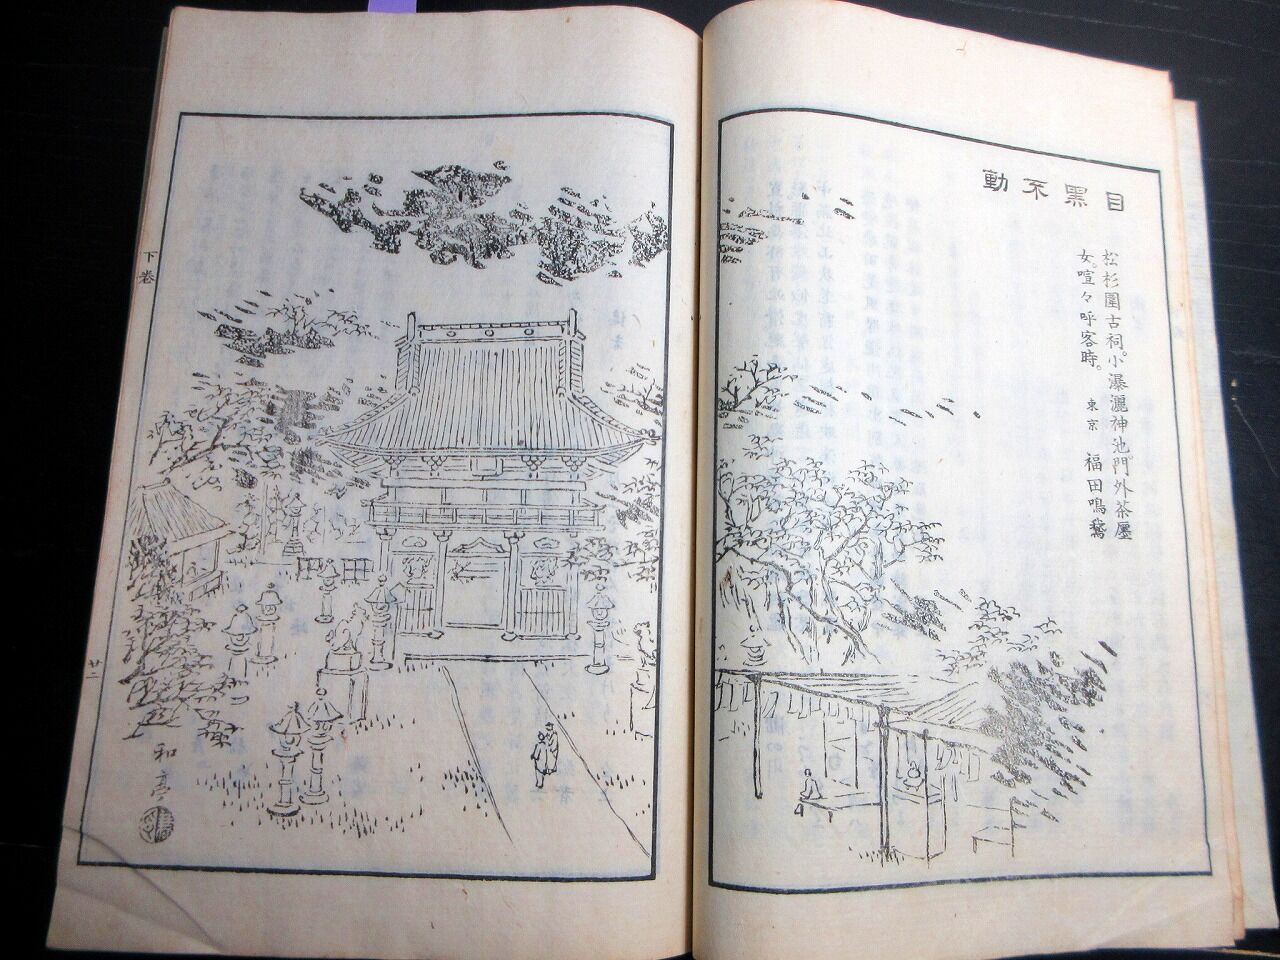 目黑不動
松杉圍古祠。小瀑灑神池。門外茶屋
女。喧々呼客時。
東京　福田鳴鵞
下卷
廿二
和亭